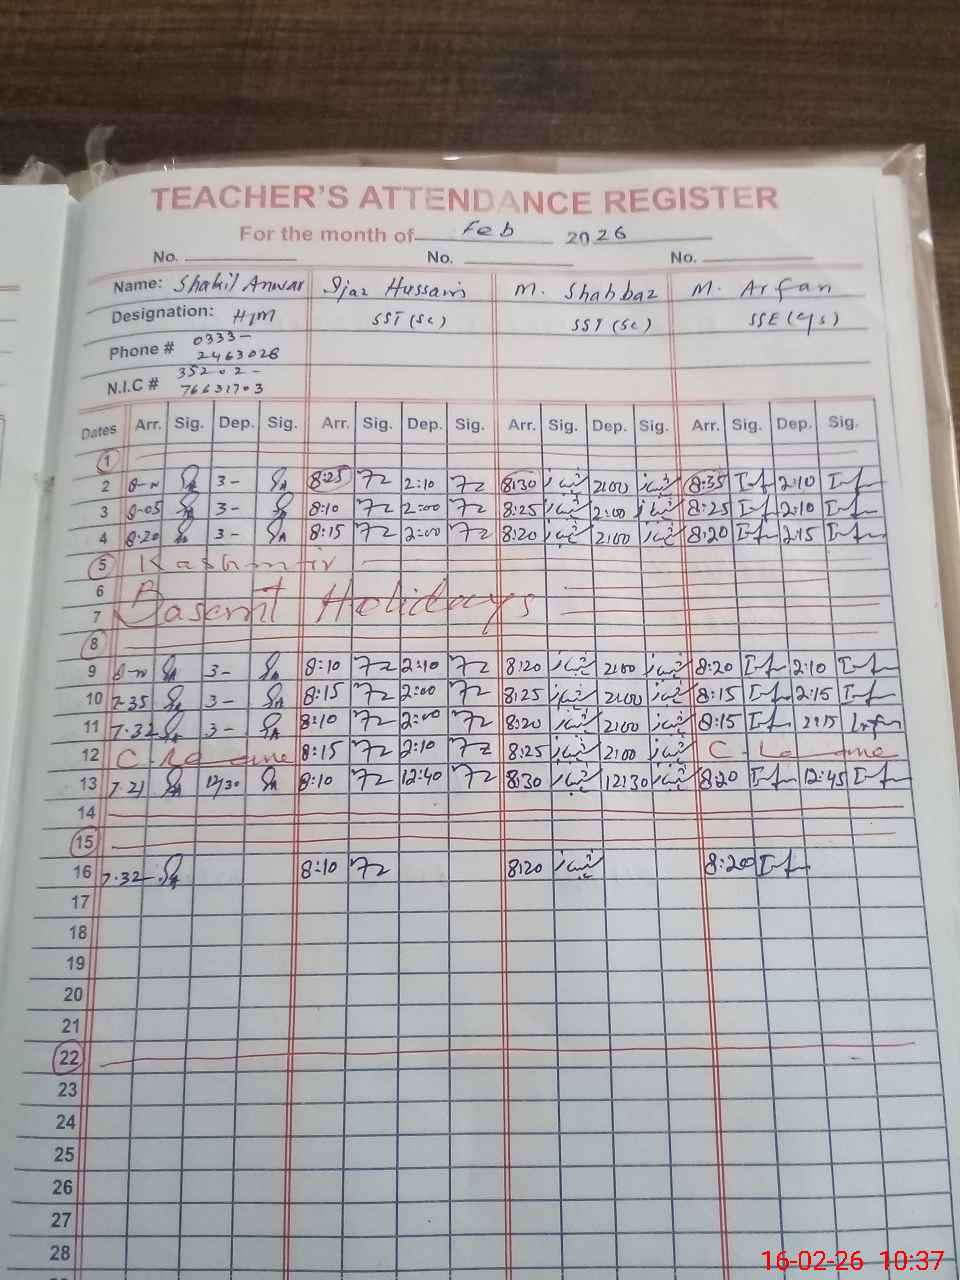 TEACHER'S ATTENDANCE REGISTER
For the month of Feb 2026
No. No. No.
Name: Shakil Anwar Ijaz Hussain M. Shahbaz M. Arfan
Designation: H/M SST (Sc) SST (Sc) SSE (
Phone # 0333-
2463026
N.I.C # 35202-
76631703
Dates Arr. Sig. Dep. Sig. Arr. Sig. Dep. Sig. Arr. Sig. Dep. Sig. Arr. Sig. Dep. Sig.
1
2 3- 8:25 2:10 8:30 شہباز 2:00 شہباز 8:35 2:10
3 8-05 3- 8:10 2:00 8:25 شہباز 2:00 شہباز 8:25 2:10
4 8:20 3- 8:15 2:00 8:20 شہباز 2:00 شہباز 8:20 2:15
5 Kashmir
6
7 Basant Holidays
8
9 3- 8:10 2:10 8:20 شہباز 2:00 شہباز 8:20 2:10
10 7-35 3- 8:15 2:00 8:25 شہباز 2:00 شہباز 8:15 2:15
11 7.32 3- 8:10 2:00 8:20 شہباز 2:00 شہباز 8:15 2:15
12 C. Leave 8:15 2:10 8:25 شہباز 2:00 شہباز C. Leave
13 7.21 12/30 8:10 12:40 8:30 شہباز 12:30 شہباز 8:20 12:45
14
15
16 7.32 8:10 8:20 شہباز 8:20
17
18
19
20
21
22
23
24
25
26
27
28
16-02-26 10:37